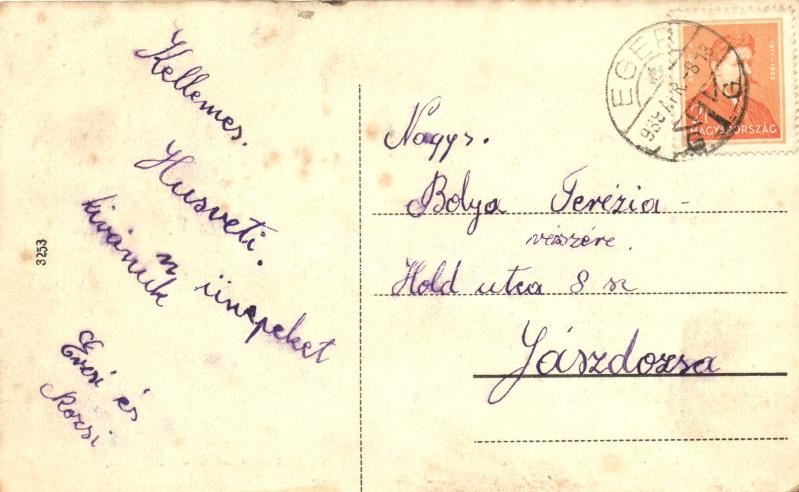 Kellemes.
Husveti.
ünnepeket
kivánuk
Évesi és
Rozsi
3253
EGER
939 ÁPR. -8 13
MAGYARORSZÁG
Nagys.
Bolya Terézia -
részére.
Hold utca 8 sz
Jászdozsa